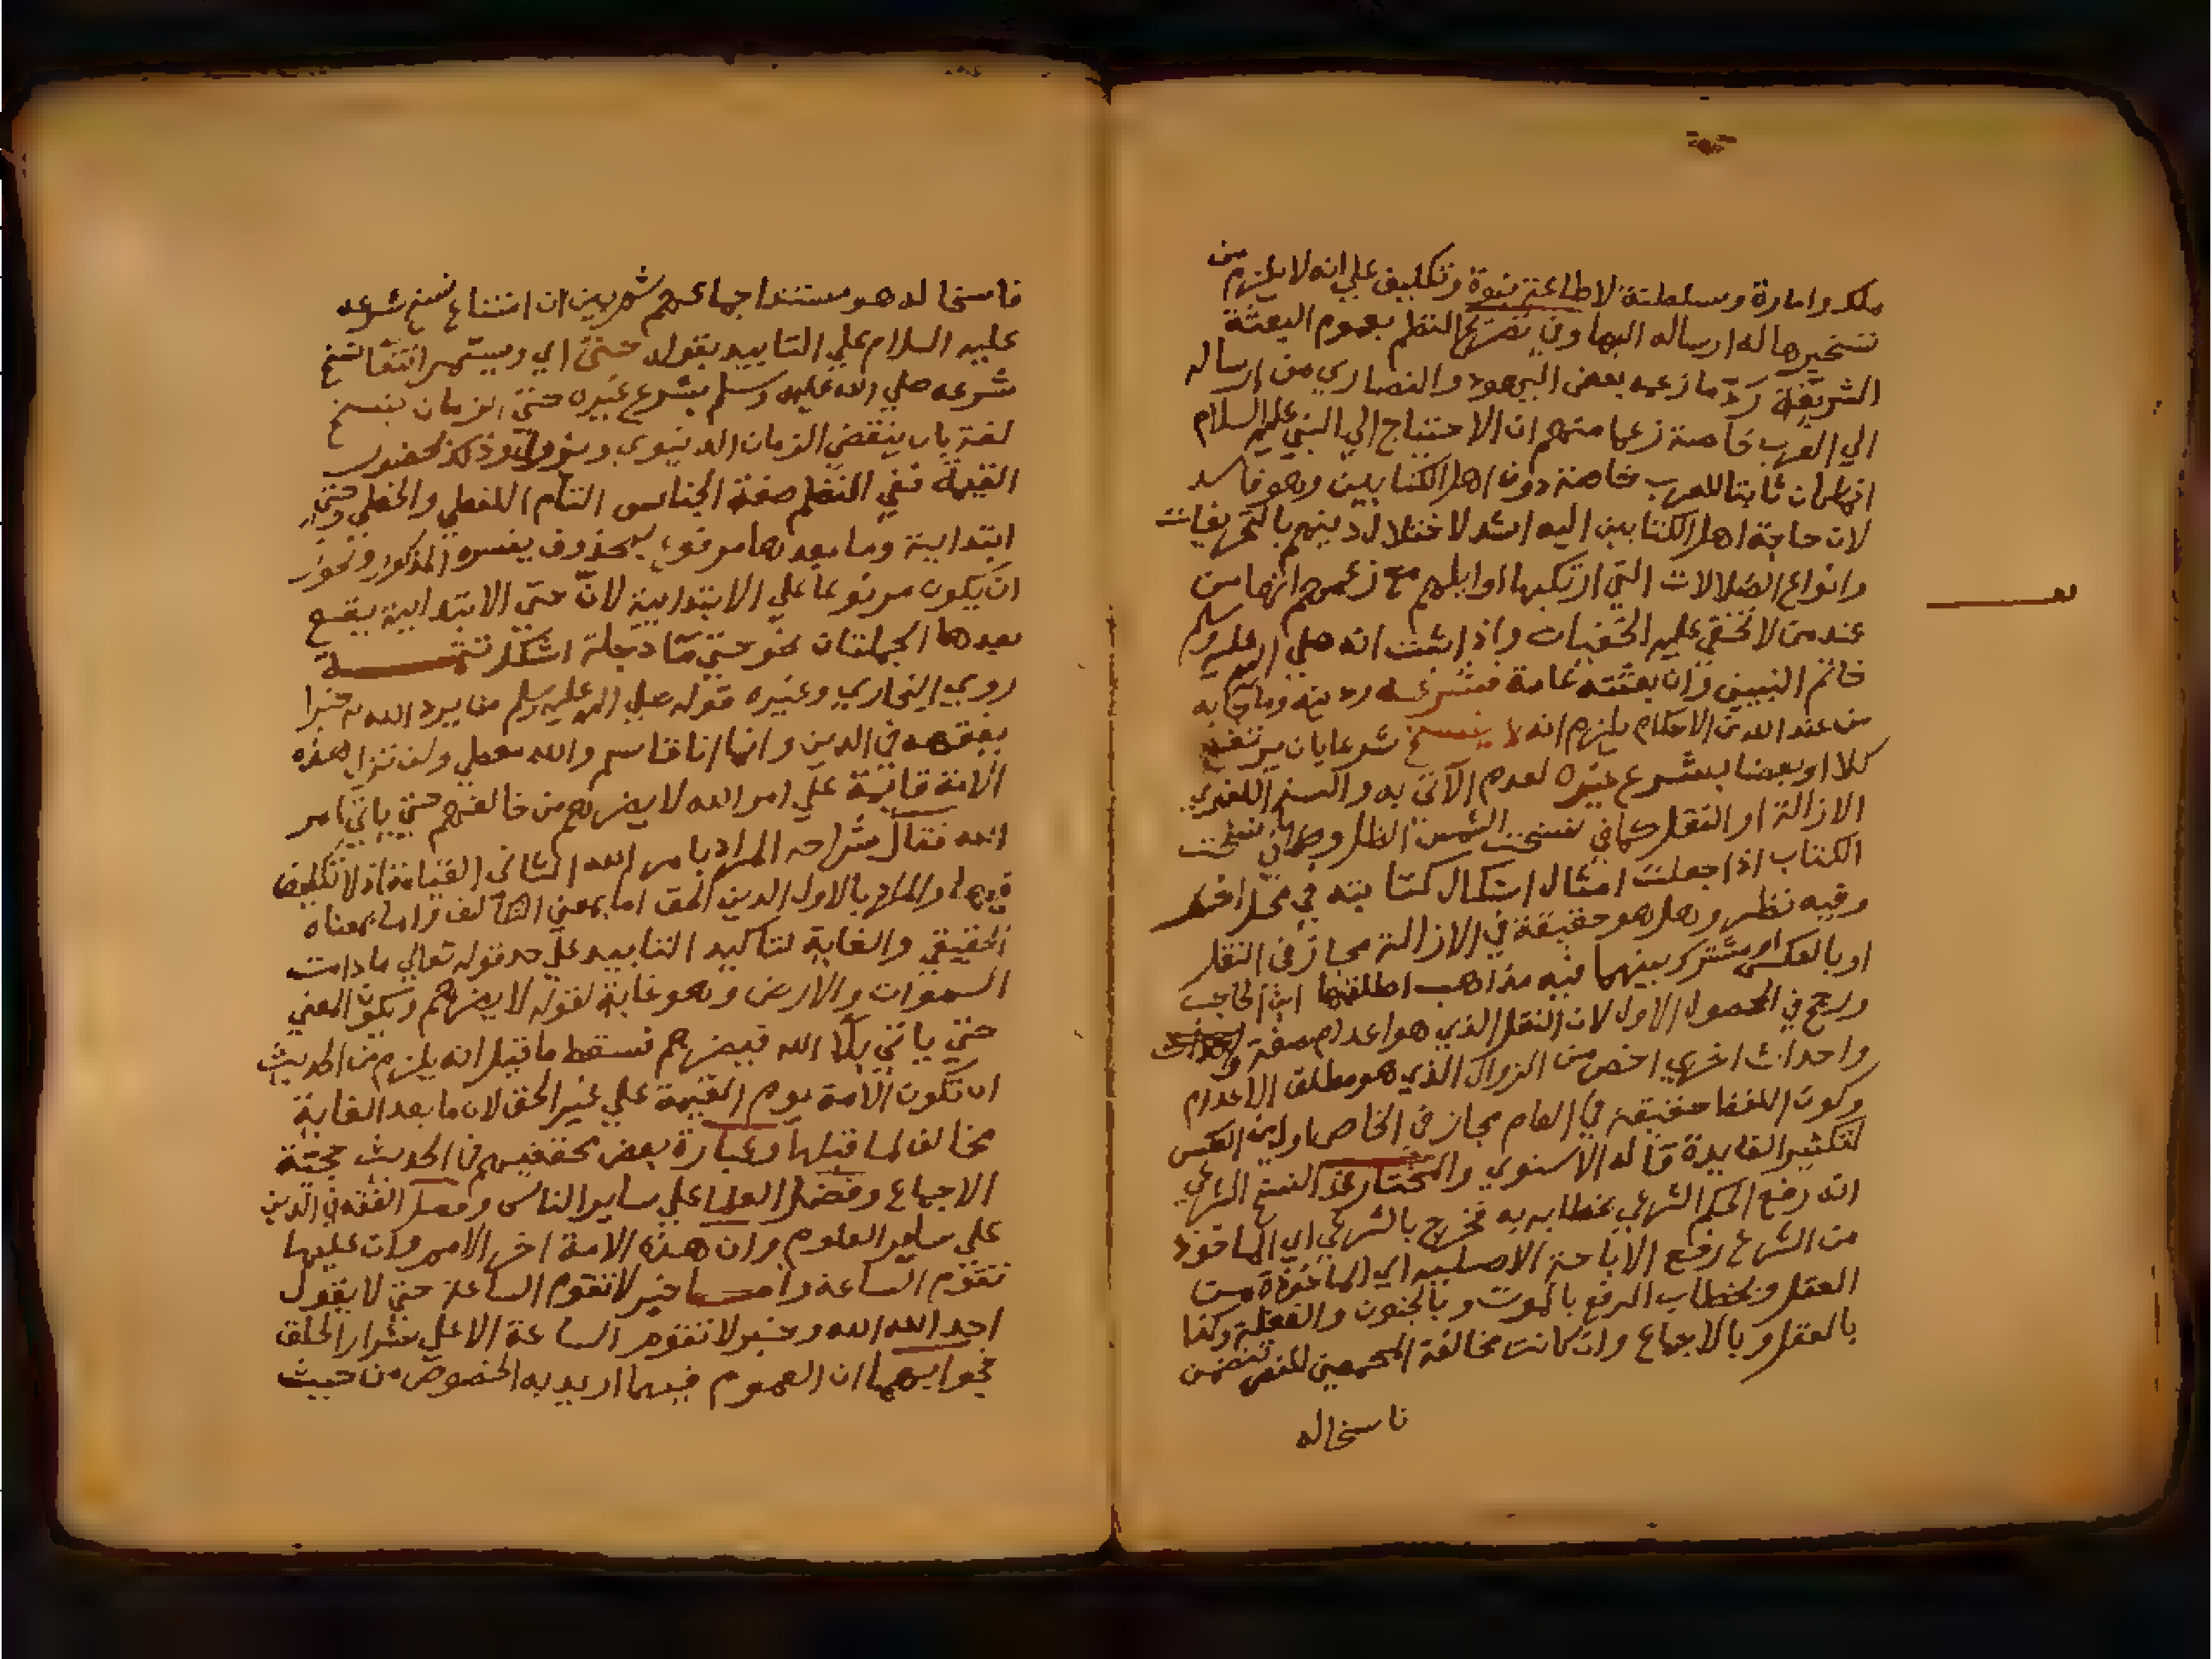 ملك وامارة وسلطنة لا طاعة نبوة وتكليف علي انه لا يلزم من
تسخيرها له ارساله اليها وفي تصريح النظم بعموم البعثة
الشريفة رد ما زعمه بعض اليهود والنصاري من ارساله
الي العرب خاصة زعما منهم ان الاحتياج الي النبي عليه السلام
انما كان ثابتا للعرب خاصة دون اهل الكتابين وهو فاسد
لان حاجة اهل الكتابين اليه اشد لاختلال دينهم بالتحريفات
وانواع الضلالات التي ارتكبها اوايلهم مع زعمهم انها من
عند من لا تخفي عليه الخفيات واذا ثبت انه صلي الله عليه وسلم
خاتم النبيين وان بعثته عامة فشرعه ودينه وما جا به
من عند الله من الاحكام يلزم انه لا ينسخ شرعا بان يرتفع
كلا او بعضا بشرع غيره لعدم الآتي به والنسخ اللغوي
الازالة او النقل كما في نسخت الشمس الظل وكما في نسخت
الكتاب اذا جعلت امثال اشكال كتابته في محل اخر
وفيه نظر وهل هو حقيقة في الازالة مجاز في النقل
او بالعكس او مشترك بينهما فيه مذاهب اطلقها ابن الحاجب
ورجح في المحصول الاول لان النقل الذي هو اعدام صفة
واحداث اخري اخص من الزوال الذي هو مطلق الاعدام
وكون اللفظ حقيقة في العام مجاز في الخاص اولي من العكس
لتكثير الفايدة قاله الاسنوي والمختار في حد النسخ الشرعي
انه رفع الحكم الشرعي بخطاب به فخرج بالشرعي اي الماخوذ
من الشرع رفع الاباحة الاصلية اي الماخوذة من
العقل وبخطاب الرفع بالموت وبالجنون والغفلة وكذا
بالعقل وبالاجماع وان كانت مخالفة المجمعين للنص تتضمن
ناسخا له
ناسخا له هو مستند اجماعهم ثم بين ان امتناع نسخ شرعه
عليه السلام علي التابيد بقوله حتي اي ويستمر انتفا نسخ
شرعه صلي الله عليه وسلم بشرع غيره حتي الزمان ينسخ
لغة بان ينقضي الزمان الدنيوي ويزول وذلك لحضور
القيمة ففي النظم صفة الجناس التام اللفظي والخطي وحتي
ابتدايية وما بعدها مرفوع بمحذوف يفسره المذكور ونجوز
ان يكون مرفوعا علي الابتدايية لان حتي الابتدايية يقع
بعدها الجملتان نحو حتي ما دجلة اشكل تتمة
روي البخاري وغيره قوله صلي الله عليه وسلم من يرد الله به خيرا
يفقهه في الدين وانما انا قاسم والله معطي ولن تزال هذه
الامة قايمة علي امر الله لا يضرهم من خالفهم حتي ياتي امر
الله فقال شراحه المراد بامر الله الثاني القيامة اذ لا تكليف
فيها والمراد بالاول الدين الحق اما بمعني التكاليف واما بمعناه
الحقيقي والغاية لتاكيد التابيد علي حد قوله تعالي ما دامت
السموات والارض وهو غاية لقوله لا يضرهم ويكون المعني
حتي ياتي بلا الله فيضرهم فسقط ما قيل انه يلزم من الحديث
ان تكون الامة يوم القيمة علي غير الحق لان ما بعد الغاية
مخالف لما قبلها وعبارة بعض محققيهم في الحديث حجية
الاجماع وفضل العلما علي ساير الناس وفضل الفقه في الدين
علي ساير العلوم وان هذه الامة اخر الامم وان عليها
تقوم الساعة واما خبر لا تقوم الساعة حتي لا يقول
احد الله الله وخبر لا تقوم الساعة الا علي شرار الخلق
فجوابهما ان العموم فيهما اريد به الخصوص من حيث